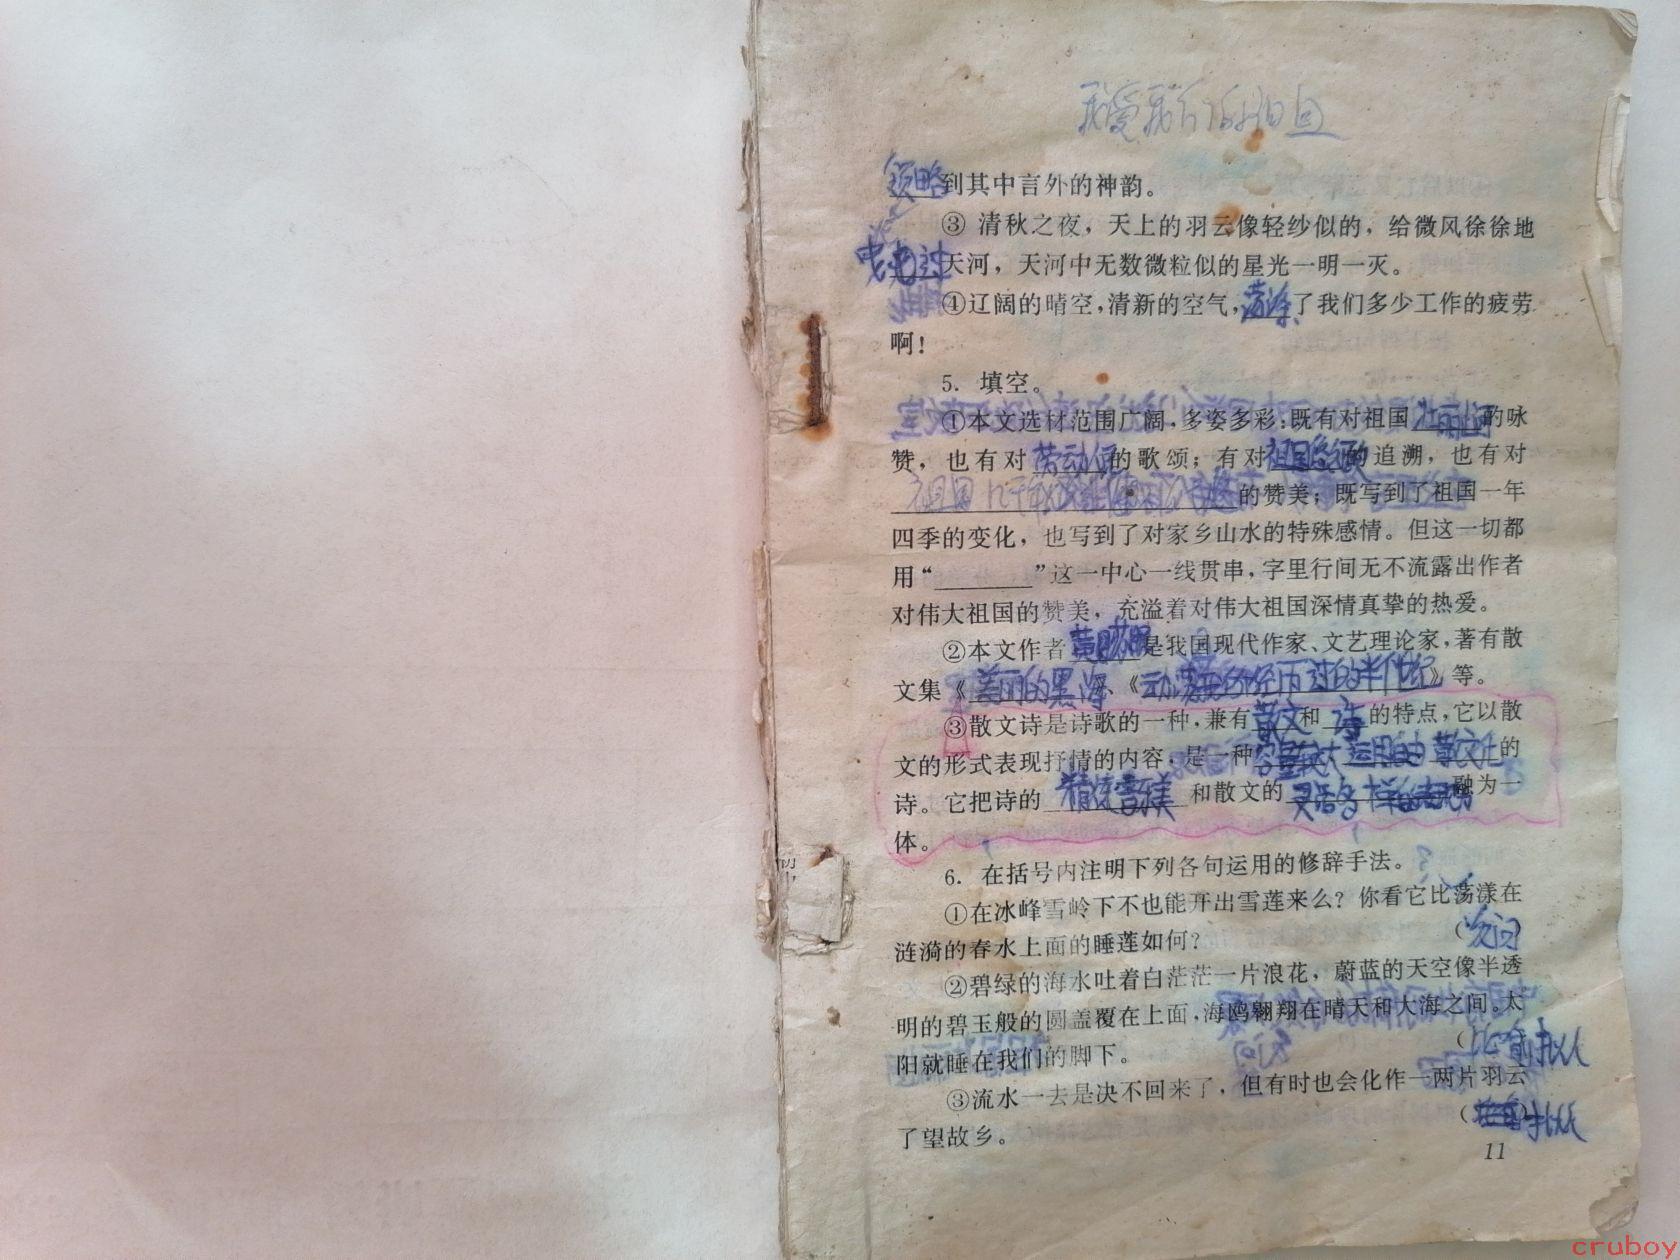 我爱我们的祖国
领略到其中言外的神韵。
③ 清秋之夜，天上的羽云像轻纱似的，给微风徐徐地
天河，天河中无数微粒似的星光一明一灭。
④辽阔的晴空，清新的空气，荡涤了我们多少工作的疲劳
啊！
5. 填空。
①本文选材范围广阔，多姿多彩：既有对祖国 的咏
赞，也有对 劳动人民 的歌颂；有对 祖国 的追溯，也有对
祖国几千年 的赞美；既写到了祖国一年
四季的变化，也写到了对家乡山水的特殊感情。但这一切都
用“________”这一中心一线贯串，字里行间无不流露出作者
对伟大祖国的赞美，充溢着对伟大祖国深情真挚的热爱。
②本文作者 黄 是我国现代作家、文艺理论家，著有散
文集《美丽的黑海》、《动荡 的半世纪》等。
③散文诗是诗歌的一种，兼有 散文 和 诗 的特点，它以散
文的形式表现抒情的内容，是一种 容量较大 运用自由 散文化 的
诗。它把诗的 精炼 和散文的 灵活多样的 融为一
体。
6. 在括号内注明下列各句运用的修辞手法。
①在冰峰雪岭下不也能开出雪莲来么？你看它比荡漾在
涟漪的春水上面的睡莲如何？ （ 反问 ）
②碧绿的海水吐着白茫茫一片浪花，蔚蓝的天空像半透
明的碧玉般的圆盖覆在上面，海鸥翱翔在晴天和大海之间。太
阳就睡在我们的脚下。 （ 比喻 拟人
③流水一去是决不回来了，但有时也会化作一两片羽云
了望故乡。 （ 拟人
11
cruboy